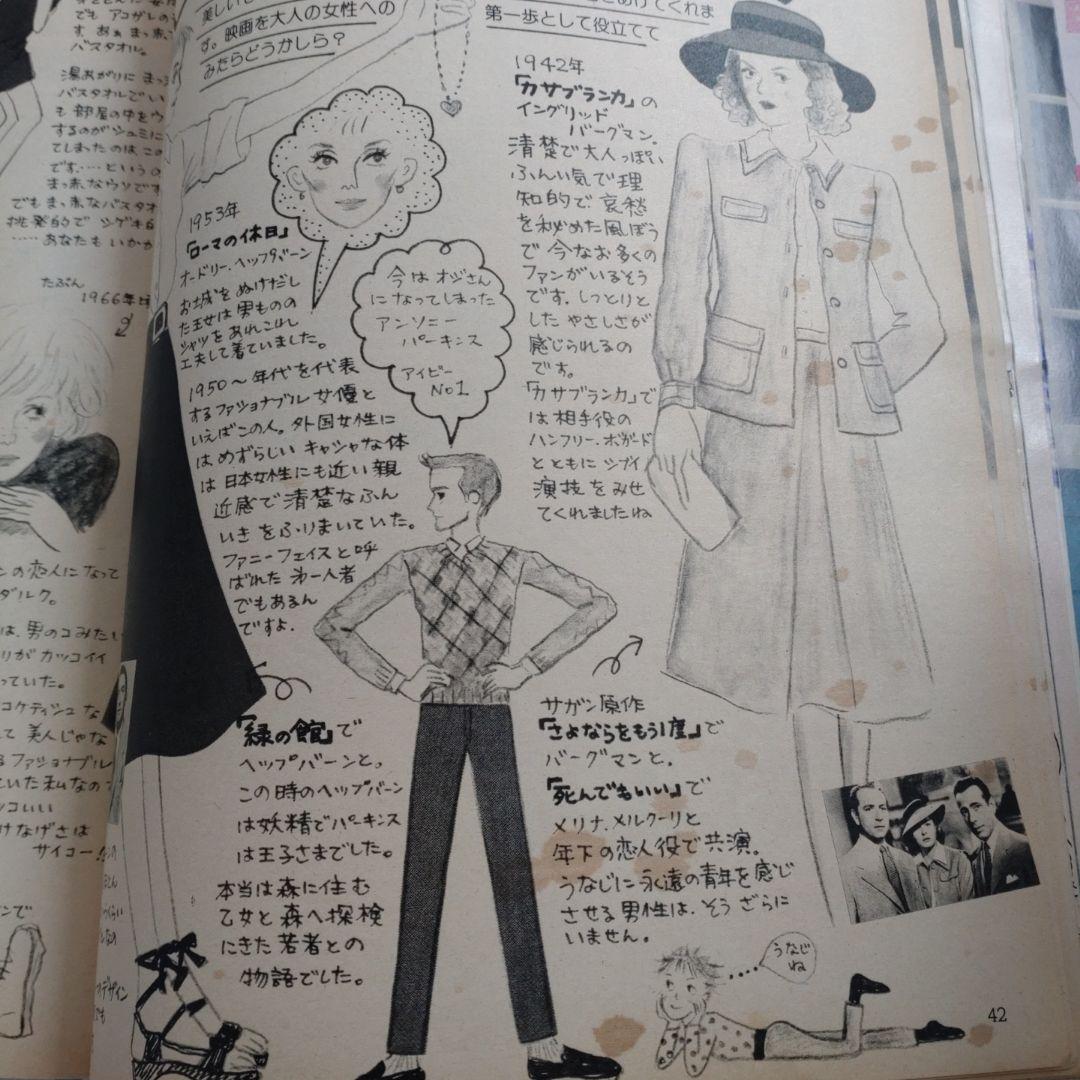 美しい
す。映画を大人の女性への
みたらどうかしら?
あげてくれま
第一歩として役立てて
1953年
「ローマの休日」
オードリー・ヘップバーン
お城をぬけだし
た王女は男ものの
シャツをあれこれ
工夫して着ていました。
1950〜年代を代表
するファッショナブル女優と
いえばこの人。外国女性に
は、めずらしいキャシャな体
は日本女性にも近い親
近感で清楚なふん
いきをふりまいていた。
ファニーフェイスと呼
ばれた第一人者
でもあるん
ですよ.
今はオジさん
になってしまった
アンソニー
パーキンス
アイビー
No1
1942年
「カサブランカ」の
イングリッド
バーグマン.
清楚で大人っぽい
ふんい気で理
知的で哀愁
を秘めた風ぼう
で今なお多くの
ファンがいるそう
です.しっとりと
したやさしさが
感じられるの
です。
「カサブランカ」で
は相手役の
ハンフリー・ボガード
とともにシブイ
演技をみせ
てくれましたね
「緑の館」で
ヘップバーンと、
この時のヘップバーン
は妖精でパーキンス
は王子さまでした。
本当は森に住む
乙女と森へ探検
にきた若者との
物語でした。
サガン原作
「さよならをもう1度」で
バーグマンと.
「死んでもいい」で
メリナ.メルクーリと
年下の恋人役で共演。
うなじに永遠の青年を感じ
させる男性は、そうざらに
いません。
うなじ
ね
42
でもアコガレの
す。あぁまっ赤
バスタオル。
湯あがりにまっ
バスタオルでい
も部屋の中をウ
するのがシュミに
てしまったのは、この
です……というの
まっ赤なウソです
でもまっ赤なバスタオ
挑発的でシゲキ的
……あなたもいかが
たぶん
1966年
ンの恋人になって
ダルク。
は、男のコみたい
りがカッコイイ
っていた。
コケティシュな
て美人じゃな
るファショナブル
ていた私なの
ッコいい
けなげさは
サイコー!
ンで
デザイン
でも